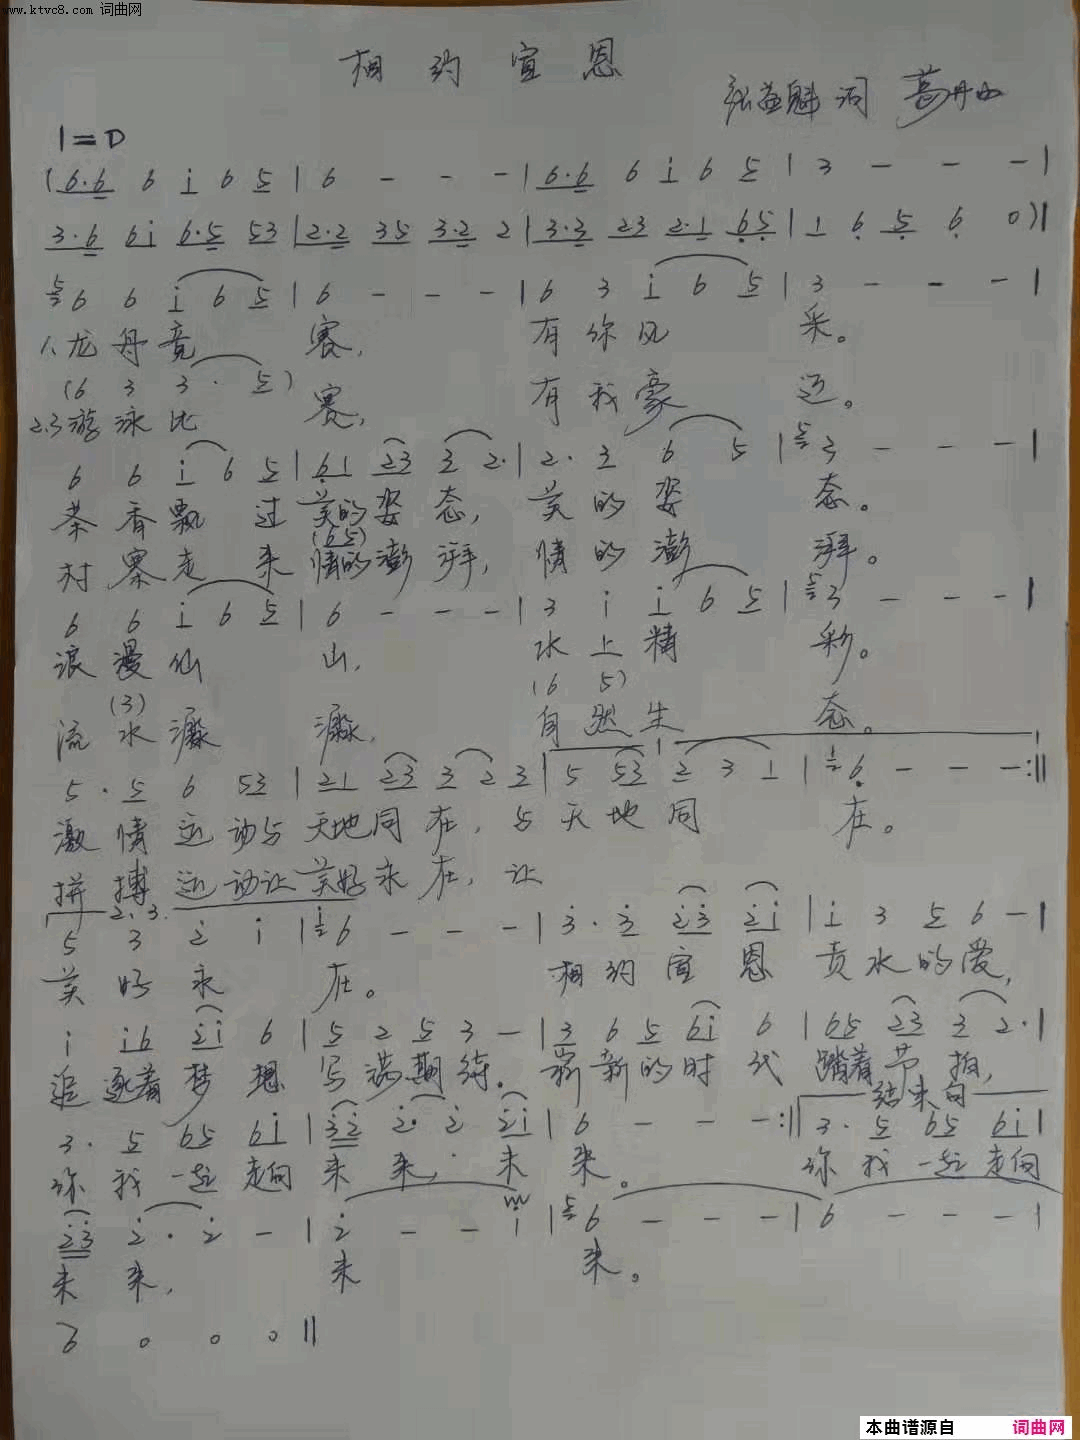 www.ktvc8.com 词曲网
相约宣恩
张益魁 词 葛丹
1=D
(6·6 6 i 6 5 | 6 - - - | 6·6 6 i 6 5 | 3 - - - |
3·6 6i 6·5 53 | 2·2 35 3·2 2 | 3·3 23 2·1 65 | 1 6 5 6 0) |
5 6 6 i 6 5 | 6 - - - | 6 3 i 6 5 | 3 - - - |
1、龙舟竞 赛, 有你风 采。
(6 3 3· 5)
2.3游泳比 赛, 有我豪 迈。
6 6 i 6 5 | 61 23 3 2· | 2· 3 6 5 | 5 3 - - - |
茶香飘 过 美的姿 态, 美的姿 态。
(65)
村寨走 来 情的澎 湃, 情的澎 湃。
6 6 i 6 5 | 6 - - - | 3 i i 6 5 | 5 3 - - - |
浪漫仙 山, 水上精 彩。
(3) (6 5)
流水潺 潺, 自然生 态。
1
5· 5 6 53 | 21 23 3 2 3 | 5 53 2 3 1 | 1 6 - - - :||
激情运动与天地同在, 与天地同 在。
拼搏运动让美好永在, 让
2. 3.
5 3 2 i | i 6 - - - | 3· 3 23 2i | i 3 5 6 - |
美好永 在。 相约宣恩 贡水的爱,
i i6 2i 6 | 5 2 5 3 - | 3 6 5 6i 6 | 65 23 3 2· |
追逐着梦想 写满期待。崭新的时代 踏着节拍,
结束句
3· 5 65 6i | 32 2· 2 2i | 6 - - - :|| 3· 5 65 6i |
你我一起走向未来, 未 来。 你我一起走向
23 2· 2 - | 2 - - i | 5 6 - - - | 6 - - - |
未来, 未 来。
6 0 0 0 ||
本曲谱源自 词曲网